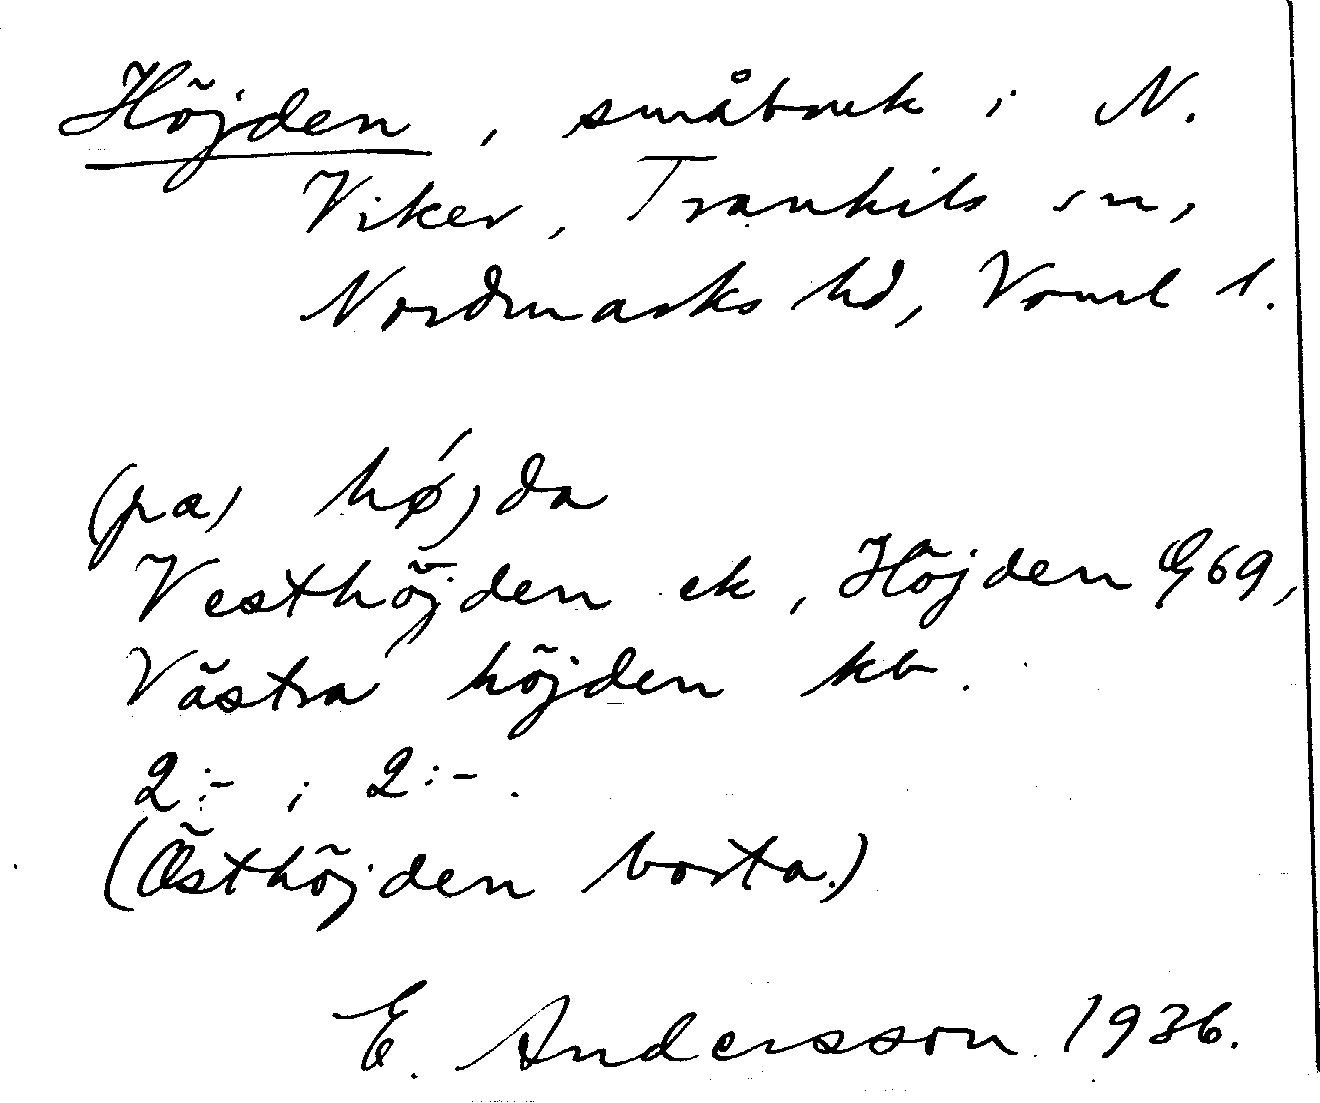 Höjden, småbruk i N.
Viker, Trankils sn,
Nordmarks hd, Värml l.
(pa) hǿjda
Vesthöjden ek, Höjden G69,
Västra höjden kb.
2:- ; 2:-.
(Östhöjden borta.)
E. Andersson 1936.